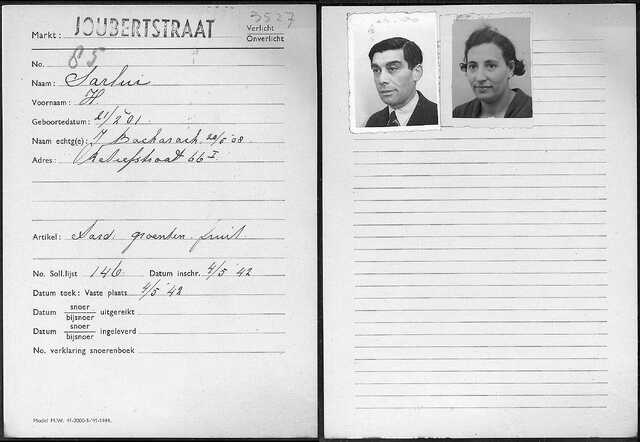 3527
Markt: JOUBERTSTRAAT
Verlicht
Onverlicht
No. 85
Naam: Sarlui
Voornaam: H
Geboortedatum: 21/2 '01
Naam echtg(e): J Bacharach 20/5 '08
Adres: Retiefstraat 66 I
Artikel: Aard. groenten fruit
No. Soll.lijst 146 Datum inschr. 4/5 '42
Datum toek: Vaste plaats 4/5 '42
Datum snoer / bijsnoer uitgereikt
Datum snoer / bijsnoer ingeleverd
No. verklaring snoerenboek